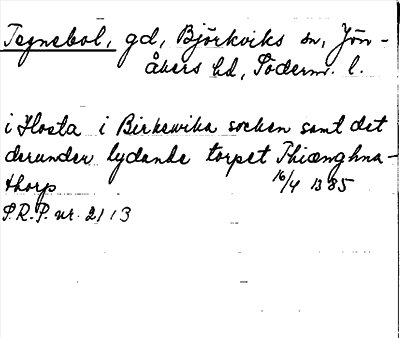 Tegnebol, gd, Björkviks sn, Jön-
åkers hd, Söderm. l.
i Hosta i Birkewika socken samt det
derunder lydande torpet Thiænghna-
thorp 16/4 1385
S.R.P. nr. 2113